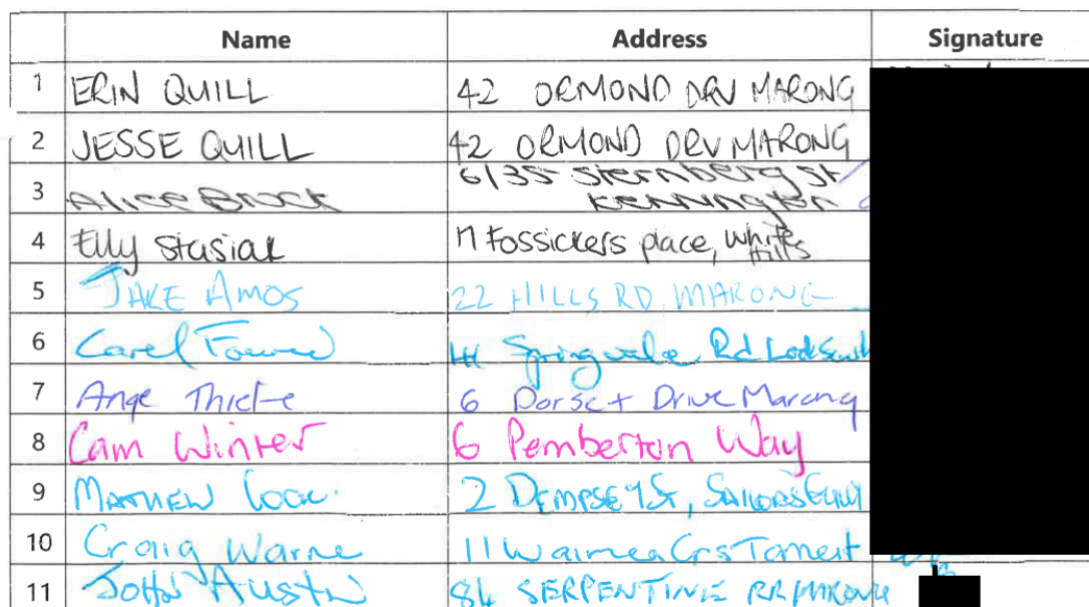 Name Address Signature
1 ERIN QUILL 42 ORMOND DRV MARONG
2 JESSE QUILL 42 ORMOND DRV MARONG
3 Alice Brock 6/35 Sternberg St
Kennington
4 Elly Stasiak 17 Fossickers place, White
Hills
5 JAKE AMOS 22 HILLS RD, MARONG
6 Carel Springvale Rd
7 Ange Thiele 6 Dorset Drive Marong
8 Cam Winter 6 Pemberton Way
9 MATHEW 2 DEMPSEY St, SAILORS GULLY
10 Craig Warne 11 Waimea Crs Tarneit
11 JOHN AUSTIN 84 SERPENTINE RD MARONG